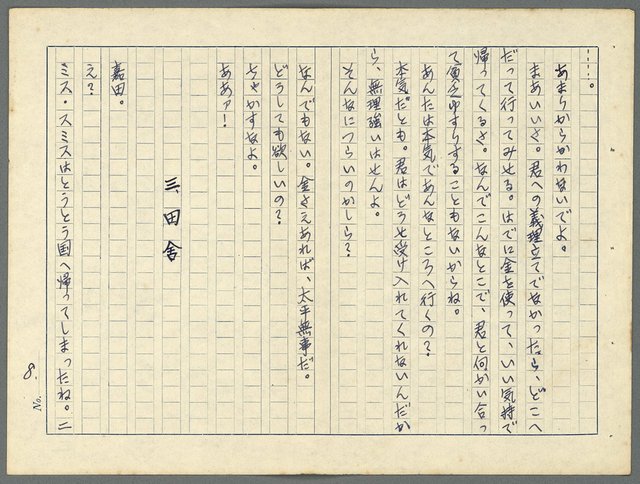 ……。
あまりからかわないでよ。
まあいいさ。君への義理立てでなかったら、どこへ
だって行ってみせる。はでに金を使って、いい気持で
帰ってくるさ。なんでこんなとこで、君と向かい合っ
て貧乏ゆすりすることもないからね。
あんたは本気であんなところへ行くの？
本気だとも。君はどうせ受け入れてくれないんだか
ら、無理強いはせんよ。
そんなにつらいのかしら？
なんでもない。金さえあれば、太平無事だ。
どうしても欲しいの？
ちゃかすなよ。
ああァ！
三、田舎
嘉田。
え？
ミス・スミスはとうとう国へ帰ってしまったね。二
No. 8.